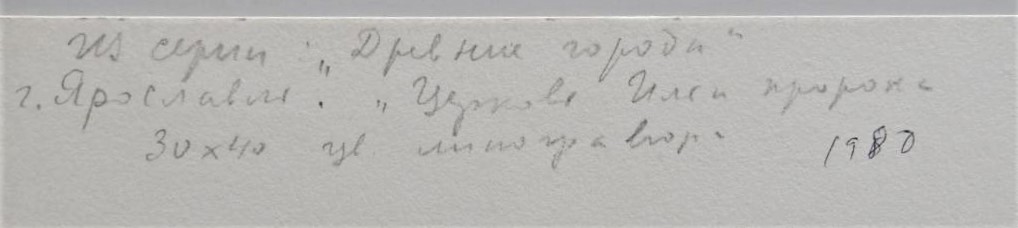 Из серии: „Древние города“
г. Ярославль. „Церковь Ильи пророка
30х40 цв. линогравюра 1980